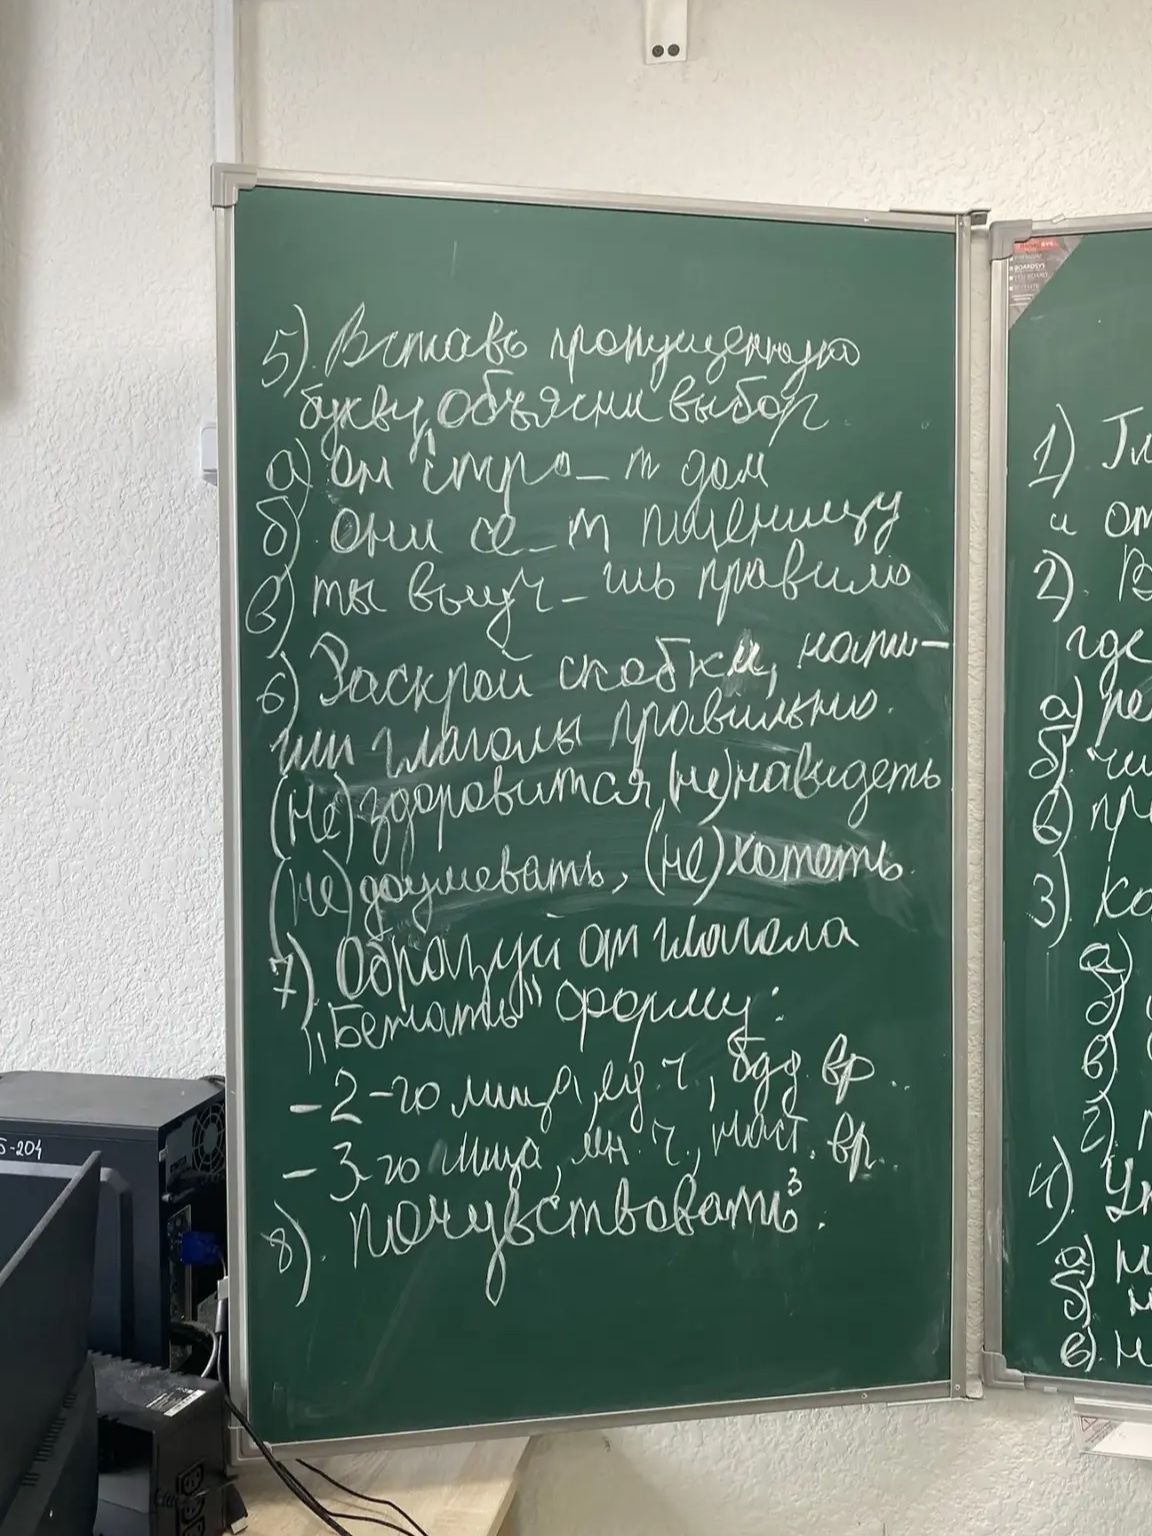 5). Вставь пропущенную
букву, объясни выбор.
а) он стро_т дом
б) они се_т пшеницу
в) ты выуч_шь правило
6) Раскрой скобки, напи-
ши глаголы правильно.
(не)здоровится, (не)навидеть
(не)доумевать, (не)хотеть.
7). Образуй от глагола
"Бежать" форму:
- 2-го лица, ед. ч., буд. вр.
- 3-го лица, мн. ч., наст. вр.
8). почувствовать³.
1) Гл
и от
2). В
где
а) ре
б) чи
в) пр
3) Ко
а)
б)
в)
г)
4). Ук
а) н
б) н
в). н
5-204